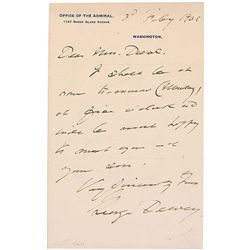 OFFICE OF THE ADMIRAL,
1747 RHODE ISLAND AVENUE.
WASHINGTON,
3d 1901
Dear Mrs.
I shall be at
home tomorrow
at o'clock and
will be most happy
to meet you and
your
Very Sincerely Yours
George Dewey